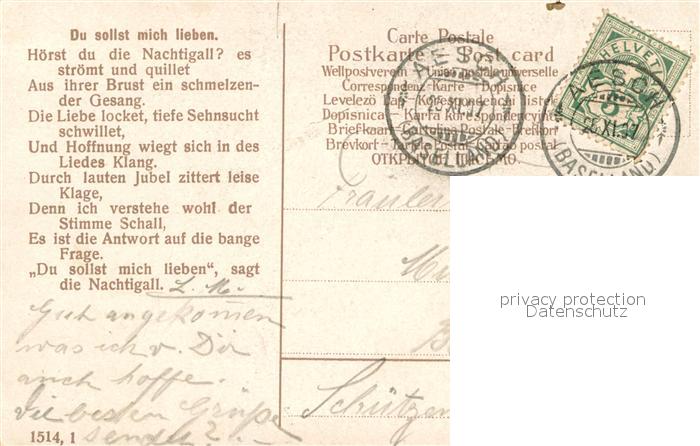 Du sollst mich lieben.
Hörst du die Nachtigall? es
strömt und quillet
Aus ihrer Brust ein schmelzen-
der Gesang.
Die Liebe locket, tiefe Sehnsucht
schwillet,
Und Hoffnung wiegt sich in des
Liedes Klang.
Durch lauten Jubel zittert leise
Klage,
Denn ich verstehe wohl der
Stimme Schall,
Es ist die Antwort auf die bange
Frage.
„Du sollst mich lieben“, sagt
die Nachtigall. L. M.
Gut angekommen
was ich v. Dir
auch hoffe.
Die besten Grüße
sendet
1514, 1
Carte Postale
Postkarte Post card
Weltpostverein Union postale universelle
Correspondenz-Karte Dopisnice
Levelező Korespondenční listek
Dopisnica Karta korespondencyjna
Briefkaart Cartolina Postale Brefkort
Brevkort Tarjeta Postal Cartão postal
ОТКРЫТОЕ ПИСЬМО.
AESCH
(BASELLAND)
HELVETIA
5
AESCH
(BASELLAND)
privacy protection
Datenschutz